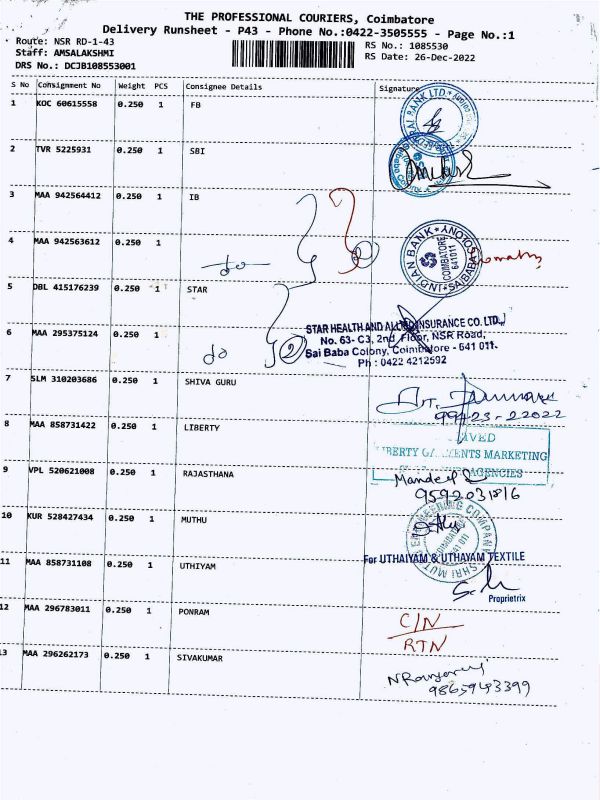 THE PROFESSIONAL COURIERS, Coimbatore
Delivery Runsheet - P43 - Phone No.:0422-3505555 - Page No.:1
Route: NSR RD-1-43
RS No.: 1085530
Staff: AMSALAKSHMI
RS Date: 26-Dec-2022
DRS No.: DCJB108553001
S No Consignment No Weight PCS Consignee Details Signature
1 KOC 60615558 0.250 1 FB
2 TVR 5225931 0.250 1 SBI
3 MAA 942564412 0.250 1 IB
INDIAN BANK
COIMBATORE
641011
SAIBABA COLONY
4 MAA 942563612 0.250 1
do 2
5 DBL 415176239 0.250 1 STAR
STAR HEALTH AND ALLIED INSURANCE CO. LTD.,
No. 63- C3, 2nd Floor, NSR Road,
Sai Baba Colony, Coimbatore - 641 011.
Ph : 0422 4212592
6 MAA 295375124 0.250 1
do 2
7 SLM 310203686 0.250 1 SHIVA GURU
99423-22022
8 MAA 858731422 0.250 1 LIBERTY
MARKETING
AGENCIES
9 VPL 520621008 0.250 1 RAJASTHANA
Mandeep
10 KUR 528427434 0.250 1 MUTHU
ENGINEERING COMPANY
11 MAA 858731108 0.250 1 UTHIYAM
For UTHAIYAM & UTHAYAM TEXTILE
Proprietrix
12 MAA 296783011 0.250 1 PONRAM
C/N
RTN
13 MAA 296262173 0.250 1 SIVAKUMAR